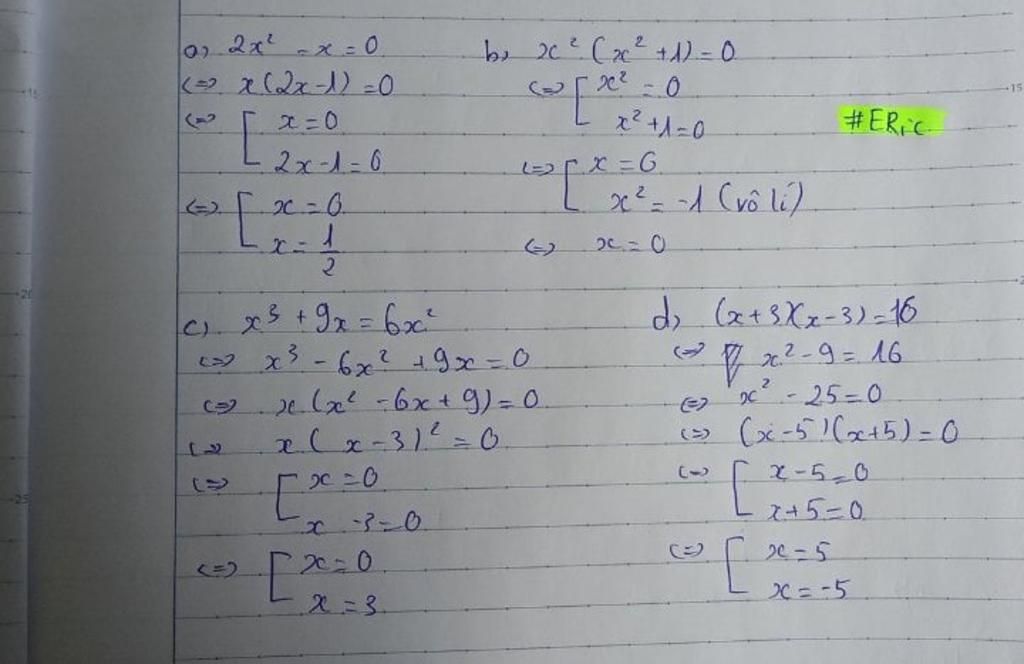 a) 2x² - x = 0
<=> x(2x-1) = 0
<=> [ x = 0
2x-1 = 0
<=> [ x = 0
x = 1/2
b) x² (x² + 1) = 0
<=> [ x² = 0
x² + 1 = 0
<=> [ x = 0
x² = -1 (vô lí)
<=> x = 0
#ERic
c) x³ + 9x = 6x²
<=> x³ - 6x² + 9x = 0
<=> x (x² - 6x + 9) = 0
<=> x (x - 3)² = 0
<=> [ x = 0
x - 3 = 0
<=> [ x = 0
x = 3
d) (x+3)(x-3) = 16
<=> x² - 9 = 16
<=> x² - 25 = 0
<=> (x-5)(x+5) = 0
<=> [ x - 5 = 0
x + 5 = 0
<=> [ x = 5
x = -5
15
20
25